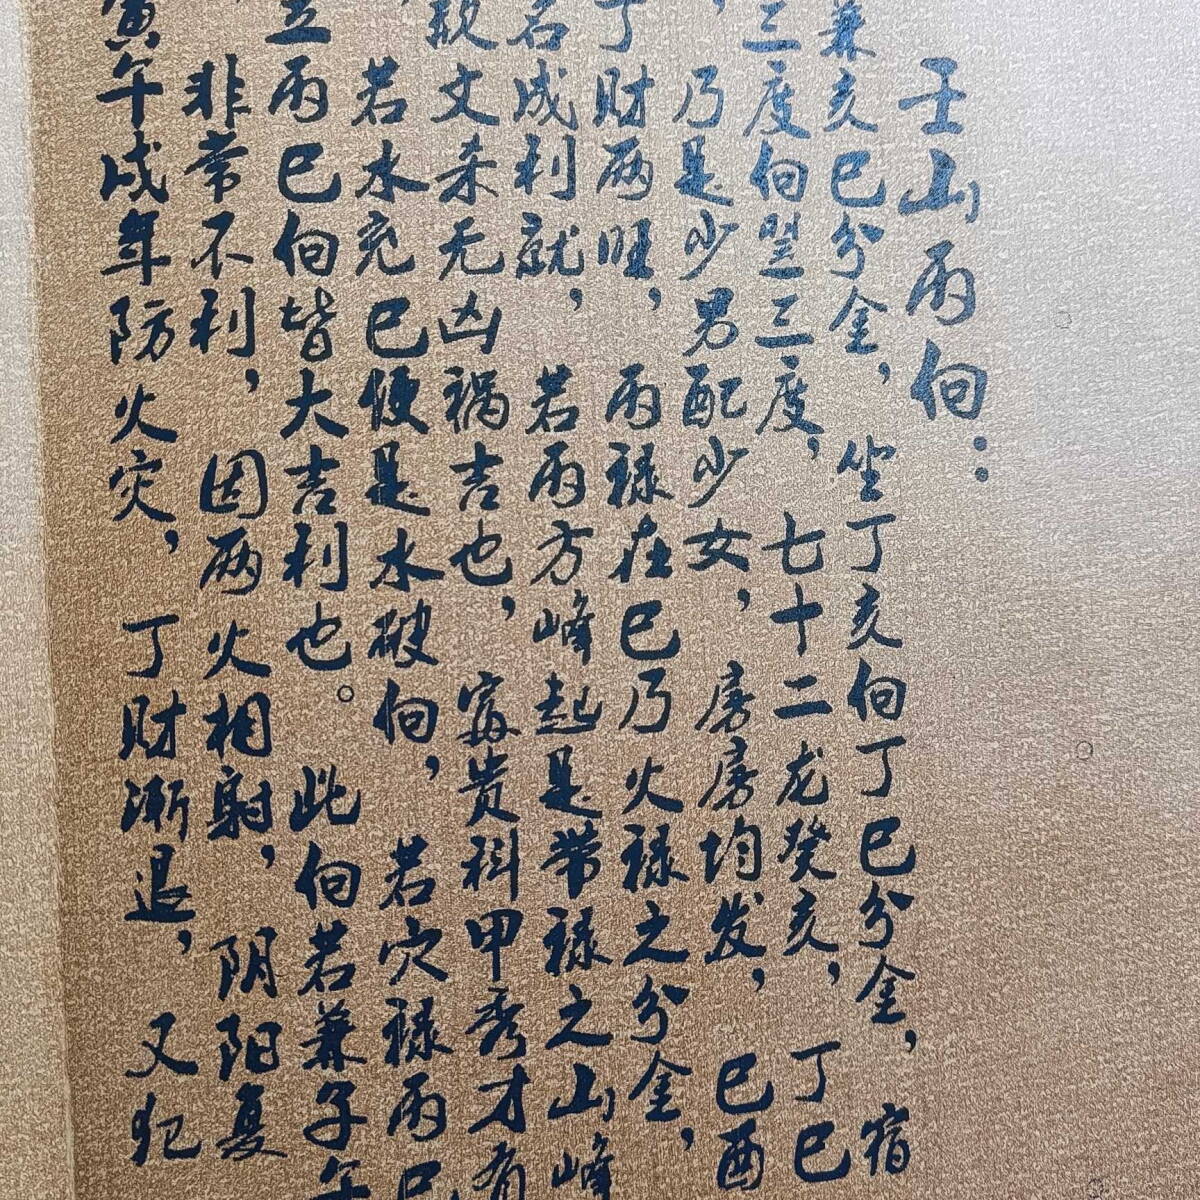 壬山丙向：
兼亥巳分金，坐丁亥向丁巳分金，宿
三度向翌三度，七十二龙癸亥，丁巳
，乃是少男配少女，房房均发，巳酉
丁财两旺，丙禄在巳乃火禄之分金，
名成利就，若丙方峰起是带禄之山峰
文来无凶祸吉也，富贵科甲秀才有
，若水充巳便是水破向，若穴禄丙巳
立丙巳向皆大吉利也。此向若兼子午
，非常不利，因两火相射，阴阳复
寅午戌年防火灾，丁财渐退，又犯